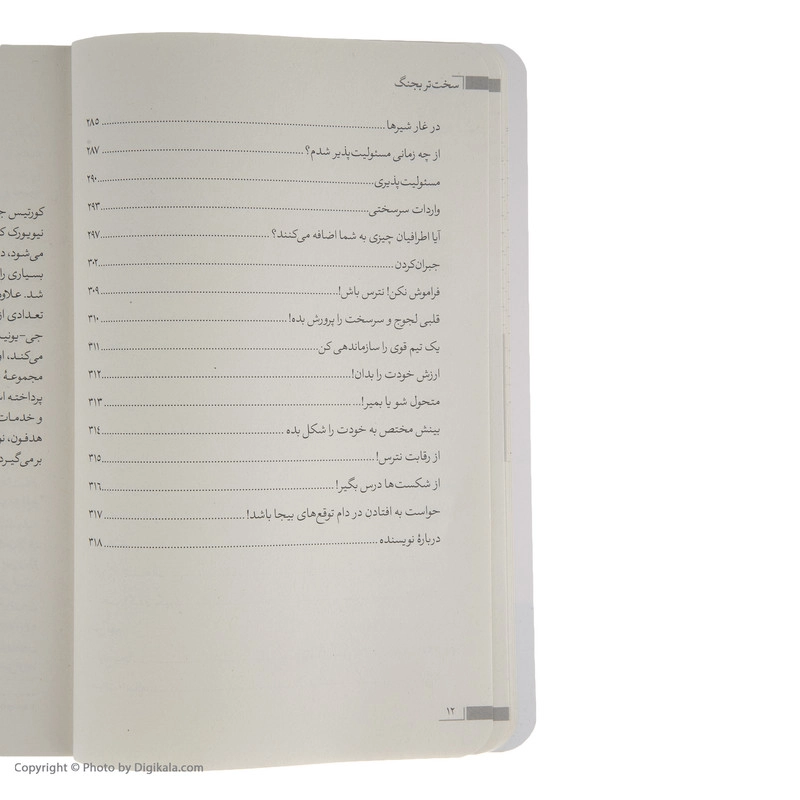 سخت‌تر بجنگ
در غار شیرها ۲۸۵
از چه زمانی مسئولیت‌پذیر شدم؟ ۲۸۷
مسئولیت‌پذیری ۲۹۰
واردات سرسختی ۲۹۳
آیا اطرافیان چیزی به شما اضافه می‌کنند؟ ۲۹۷
جبران‌کردن ۳۰۲
فراموش نکن! نترس باش! ۳۰۹
قلبی لجوج و سرسخت را پرورش بده! ۳۱۰
یک تیم قوی را سازماندهی کن ۳۱۱
ارزش خودت را بدان! ۳۱۲
متحول شو یا بمیر! ۳۱۳
بینش مختص به خودت را شکل بده ۳۱۴
از رقابت نترس! ۳۱۵
از شکست‌ها درس بگیر! ۳۱۶
حواست به افتادن در دام توقع‌های بیجا باشد! ۳۱۷
دربارهٔ نویسنده ۳۱۸
۱۲
کورتیس
نیویورک
می‌شود،
بسیاری را
شد. علاوه
تعدادی از
جی-یونیت
می‌کند،
مجموعهٔ
پرداخته
و خدمات
هدفون،
بر می‌گیرد
Copyright © Photo by Digikala.com